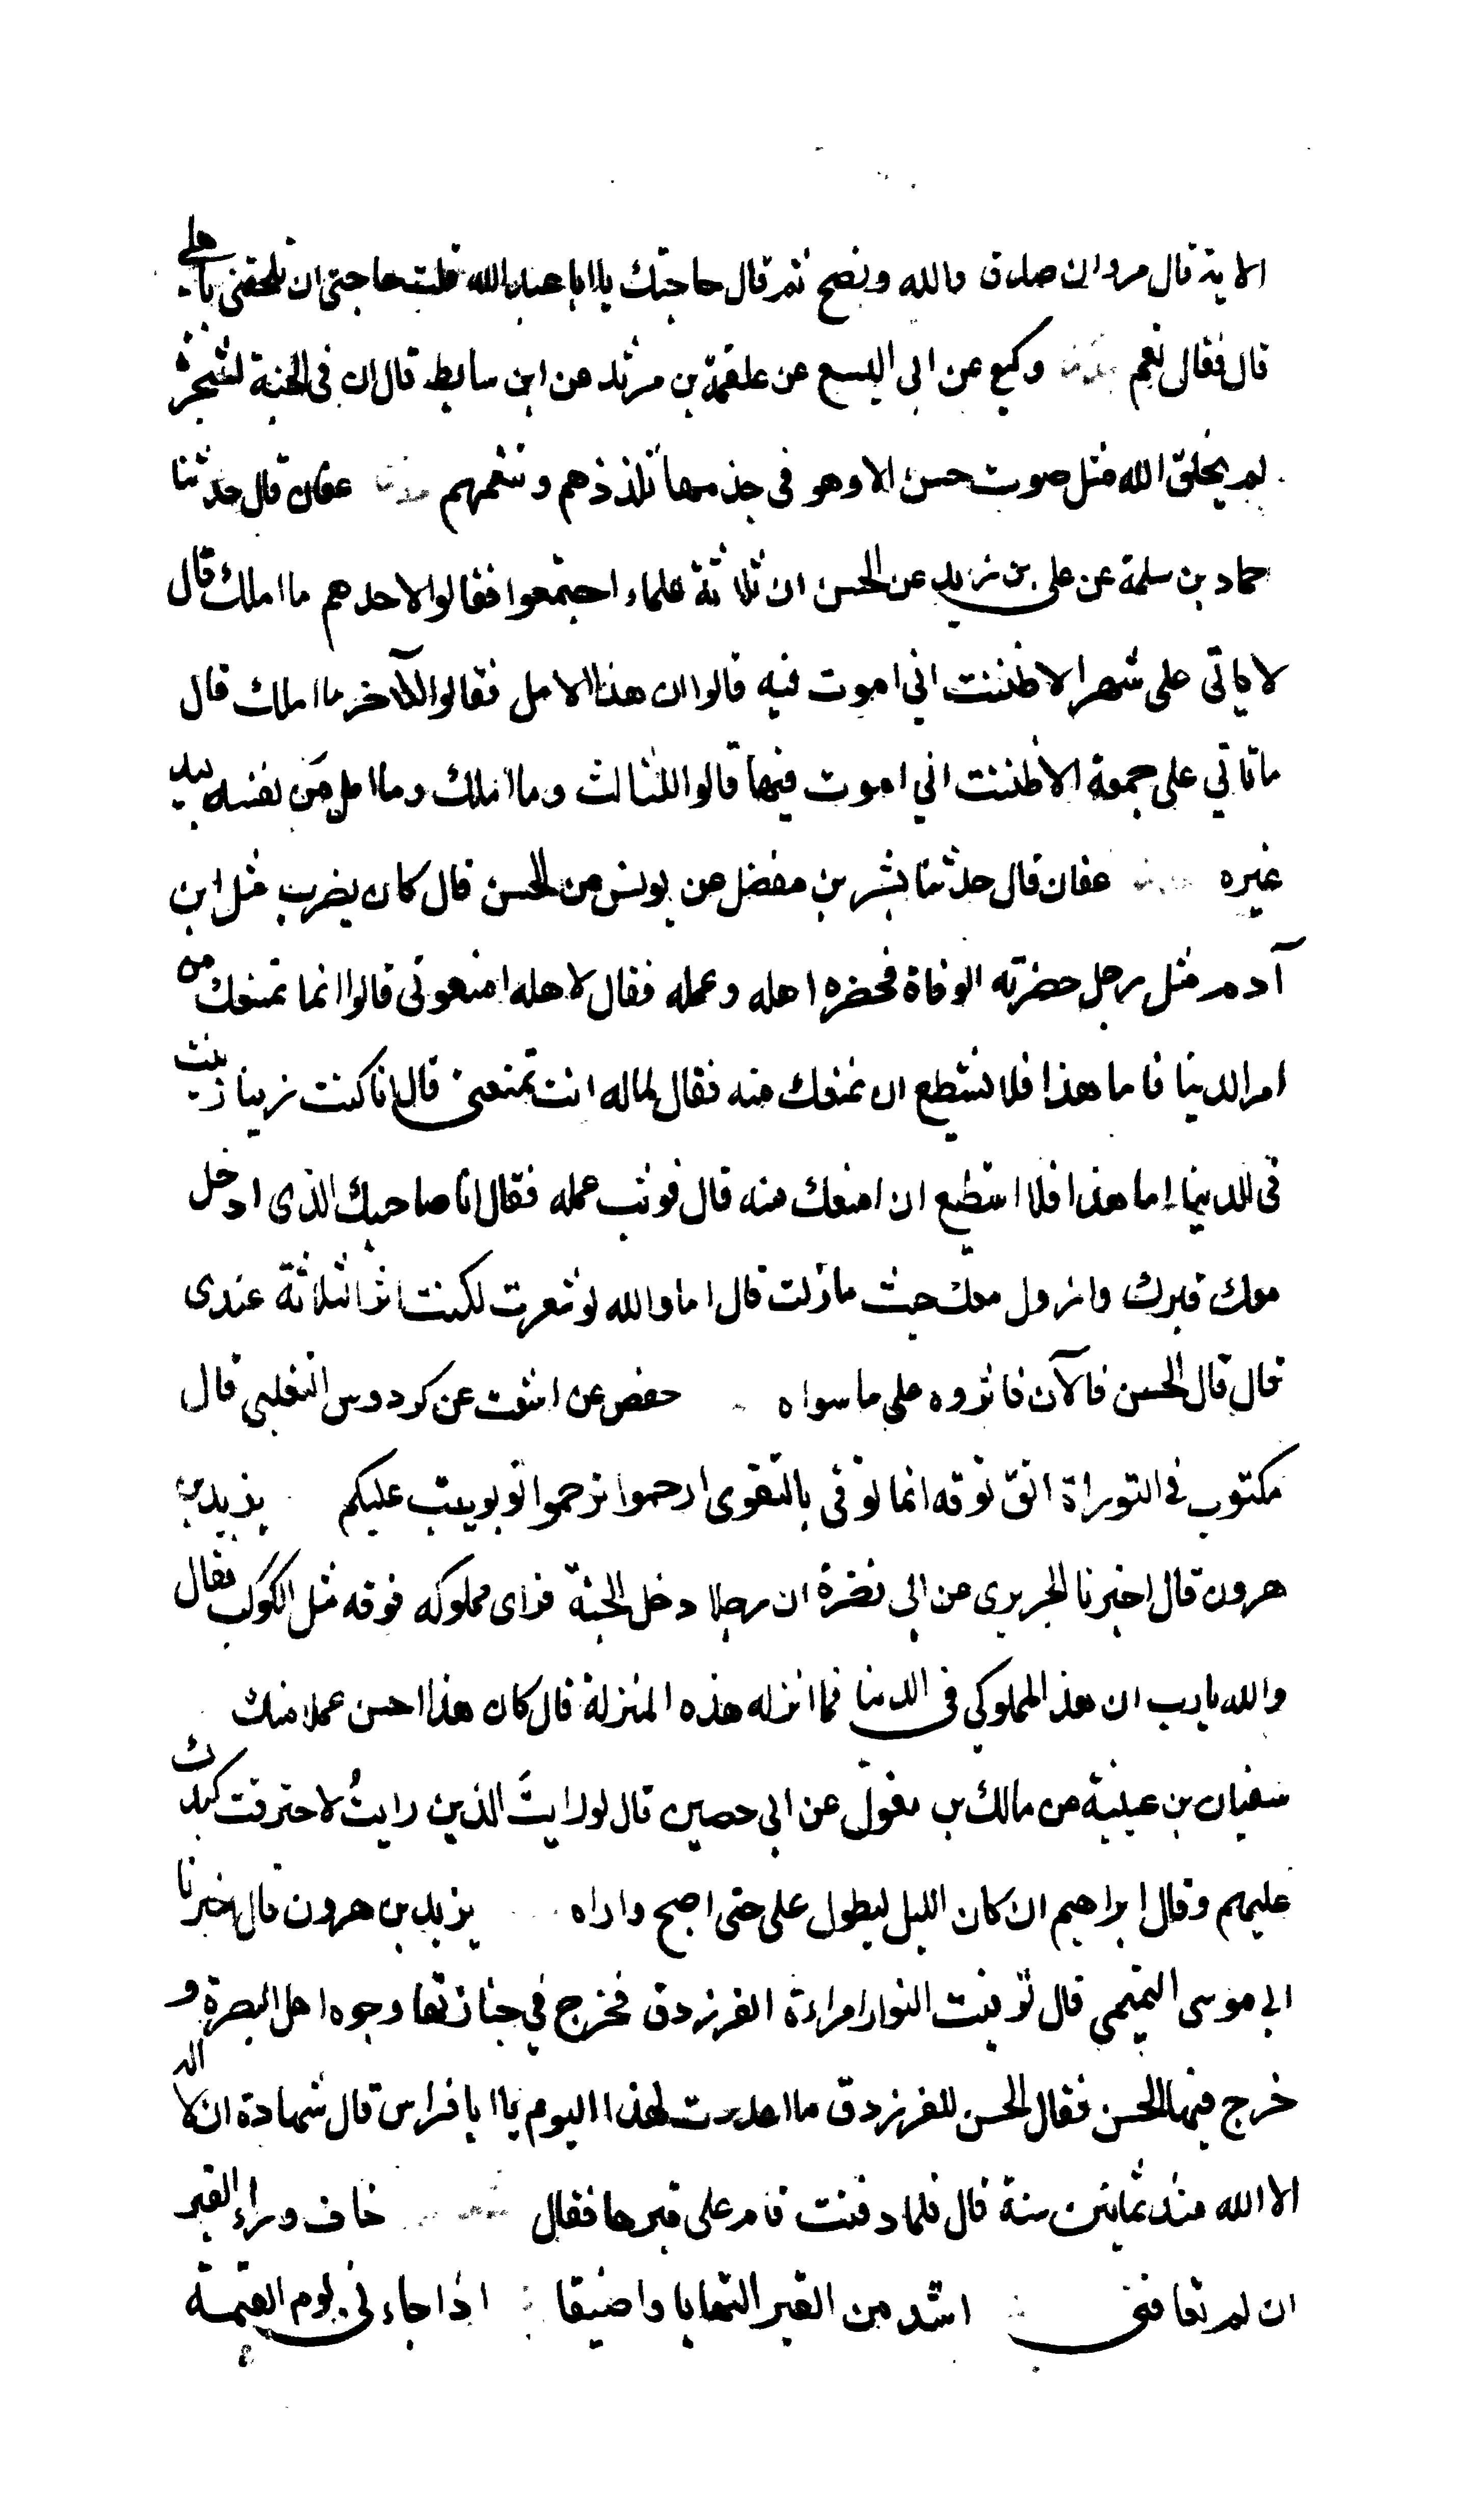 الاية قال مروان صدق والله ونصح ثم قال حاجتك يا ابا عبد الله قلت حاجتى ان تلحقنى باهلي
قال فقال نعم حدثنا وكيع عن ابى اليسع عن علقمة بن مرثد عن ابن سابط قال ان فى الجنة لشجرة
لم يخلق الله مثل صوت حسن الا وهو فى جذمها تلذذهم وتنعمهم حدثنا عفان قال حدثنا
حماد بن سلمة عن على بن زيد عن الحسن ان ثلاثة علماء اجتمعوا فقالوا لاحدهم ما املك قال
لا ياتى على شهر الا ظننت انى اموت فيه قالوا ان هذا الامل فقالوا للآخر ما املك قال
ما تاتي على جمعة الا ظننت اني اموت فيها قالوا للثالث وما املك وما امل من نفسه بيد
غيره حدثنا عفان قال حدثنا بشر بن مفضل عن يونس عن الحسن قال كان يضرب مثل ابن
آدم مثل رجل حضرته الوفاة فحضره اهله وعمله فقال لاهله امنعونى قالوا انما نمنعك من
امر الدنيا فاما هذا فلا نستطع ان نمنعك منه فقال لماله انت تمنعنى قال انا كنت زينا زينت
فى الدنيا اما هذا فلا استطيع ان امنعك منه قال فوثب عمله فقال انا صاحبك الذى ادخل
معك قبرك وانزول معك حيث مازلت قال اما والله لو شعرت لكنت اثر الثلاثة عندى
قال قال الحسن فالآن فاثروه على ما سواه حفص عن اشعث عن كردوس الثعلبى قال
مكتوب فى التوراة اتق توقه انما توقى بالتقوى ارحموا ترحموا توبو يتب عليكم يزيد بن
هرون قال اخبرنا الجريرى عن ابى نضرة ان رجلا دخل الجنة فراى مملوكه فوقه مثل الكوكب فقال
والله يارب ان هذا لمملوكى فى الدنيا فما انزله هذه المنزلة قال كان هذا احسن عملا منك
سفيان بن عيينة عن مالك بن مغول عن ابى حصين قال لو رايتَ الذين رايتُ لاحترقت كبدك
عليهم وقال ابراهيم ان كان الليل ليطول على حتى اصبح واراه يزيد بن هرون قال اخبرنا
ابي موسى التميمى قال توفيت النوار امراءة الفرزدق فخرج في جنازتها وجوه اهل البصرة و
خرج فيها الحسن فقال الحسن للفرزدق ما اعددت لهذا اليوم يا ابا فراس قال شهادة ان لا اله
الا الله منذ ثمانين سنة قال فلما دفنت قام على قبرها فقال خاف وراء القبر
ان لم تعافنى اشد من القبر التهابا واضيقا اذا جاءنى يوم القيمة